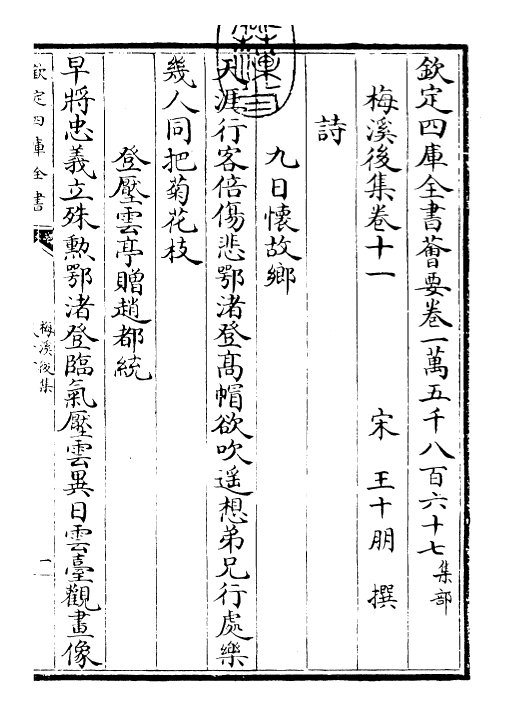 欽定四庫全書薈要卷一萬五千八百六十七集部
梅溪後集卷十一 宋 王十朋 撰
詩
九日懷故鄉
天涯行客倍傷悲鄂渚登髙帽欲吹遥想弟兄行處樂
幾人同把菊花枝
登壓雲亭贈趙都統
早將忠義立殊勲鄂渚登臨氣壓雲異日雲臺觀畫像
欽定四庫全書
梅溪後集
一